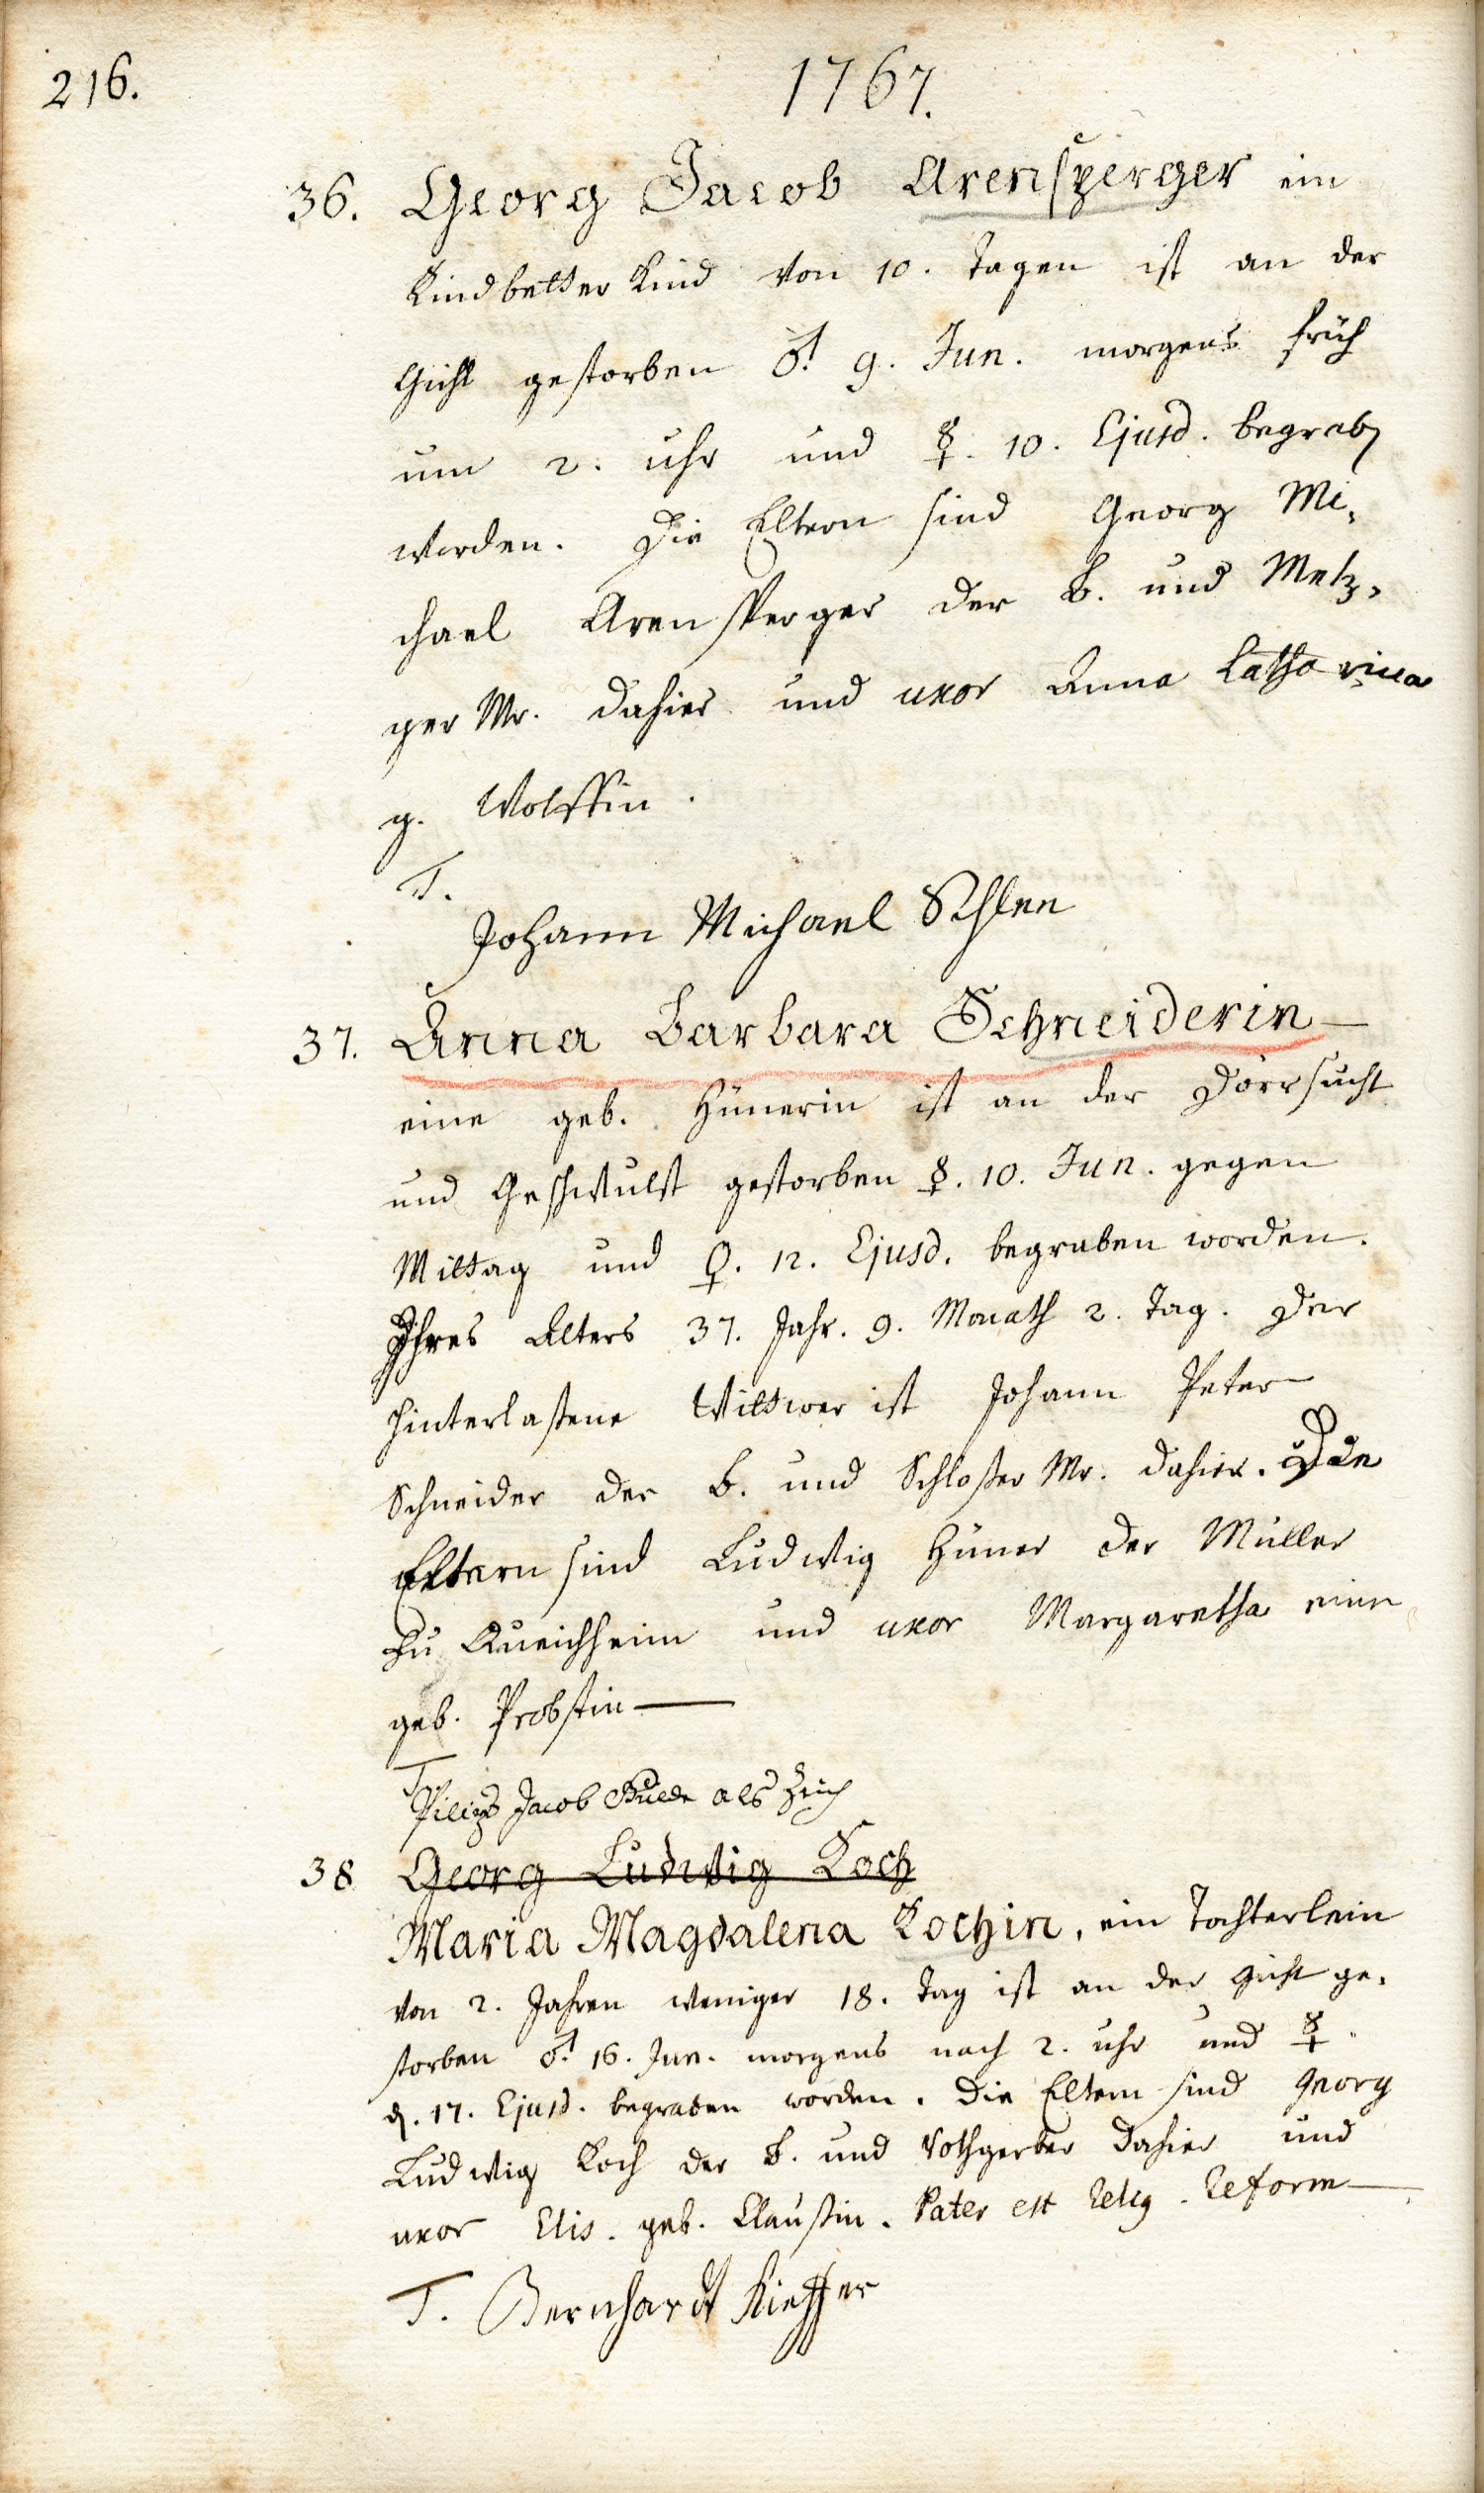 216.
1767.
36. Georg Jacob Arensperger ein
Kindbetter Kind von 10. Tagen ist an der
Gicht gestorben ♂. 9. Jun. morgens früh
um 2. uhr und ☿. 10. Ejusd. begrab
worden. Die Eltern sind Georg Mi,
chael Arensperger der B. und Metz,
ger Mr. dahier und uxor Anna Catharina
g. Wolffin.
T.
Johann Michael Schlee
37. Anna Barbara Schneiderin
eine geb. Hünerin ist an der Dörrsucht
und Geschwulst gestorben ☿. 10. Jun. gegen
Mittag und ♀. 12. Ejusd. begraben worden.
Ihres Alters 37. Jahr. 9. Monath 2. Tag. Der
hinterlaßene Wittwer ist Johann Peter
Schneider der B. und Schloßer Mr. dahier. Die
Eltern sind Ludwig Hüner der Müller
zu Queichheim und uxor Margaretha eine
geb. Probstin
T
Pilips Jacob als Zeich
38 Georg Ludwig Koch
Maria Magdalena Kochin, ein Töchterlein
von 2. Jahren weniger 18. Tag ist an der Gicht ge,
storben ♂. 16. Jun. morgens nach 2. uhr und ☿.
d. 17. Ejusd. begraben worden. Die Eltern sind Georg
Ludwig Koch der B. und Rothgerber dahier und
uxor Elis. geb. Claußin. Pater est Relig. Reform
T. Bernhardt Kieffer